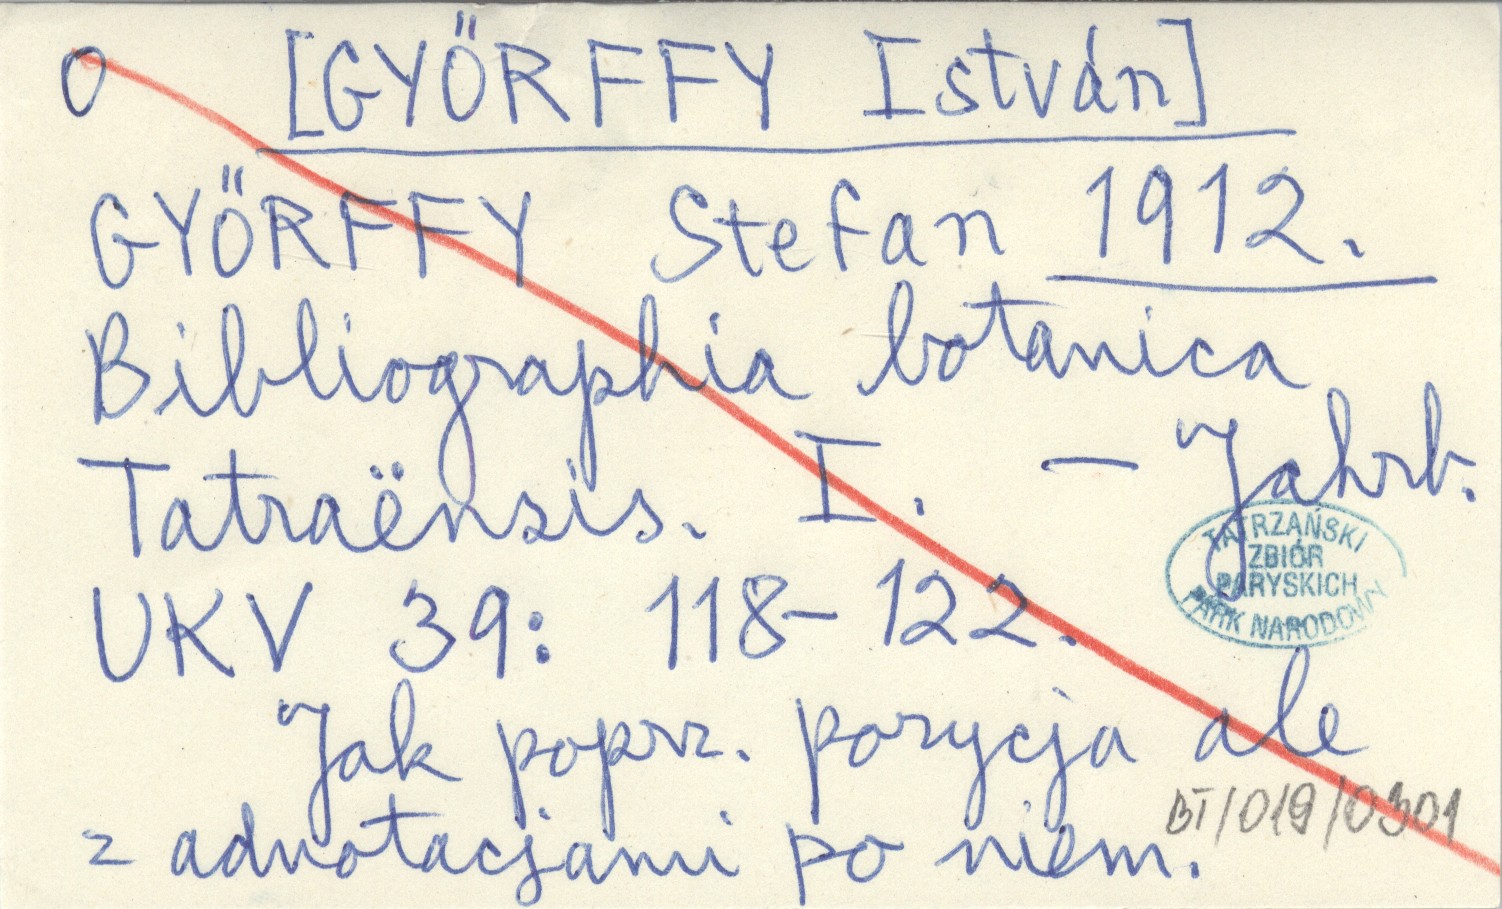 O [GYŐRFFY István]
GYŐRFFY Stefan 1912.
Bibliographia botanica
Tatraënsis. I. — Jahrb.
TATRZAŃSKI
ZBIÓR
PARYSKICH
PARK NARODOWY
UKV 39: 118-122.
Jak poprz. pozycja ale
BT/019/0301
z adnotacjami po niem.